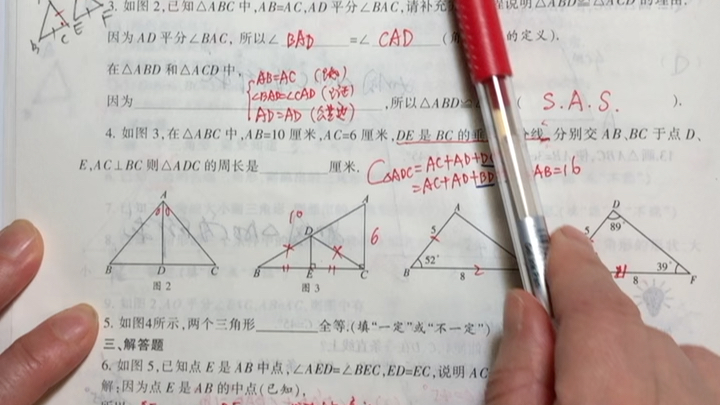 3. 如图 2,已知△ABC 中,AB=AC,AD 平分∠BAC,请补充 程说明△ABD≌△ACD 的理由.
因为 AD 平分∠BAC, 所以∠ BAD =∠ CAD (角 的定义).
在△ABD 和△ACD 中,
AB=AC (已知)
∠BAD=∠CAD (已证)
AD=AD (公共边)
因为 ,所以△ABD≌ ( S.A.S. ).
4. 如图 3,在△ABC 中,AB=10 厘米,AC=6 厘米,DE 是 BC 的垂 分线,分别交 AB、BC 于点 D、
E,AC⊥BC 则△ADC 的周长是 厘米.
C△ADC=AC+AD+DC
=AC+AD+BD AB=16
A
B D C
图 2
A
10
D
6
B E C
图 3
A
5
B 52°
8 2
D
89°
5
39° F
8
5. 如图4所示,两个三角形 全等.(填“一定”或“不一定”)
三、解答题
6. 如图 5,已知点 E 是 AB 中点,∠AED=∠BEC,ED=EC,说明 AC
解:因为点 E 是 AB 的中点(已知),